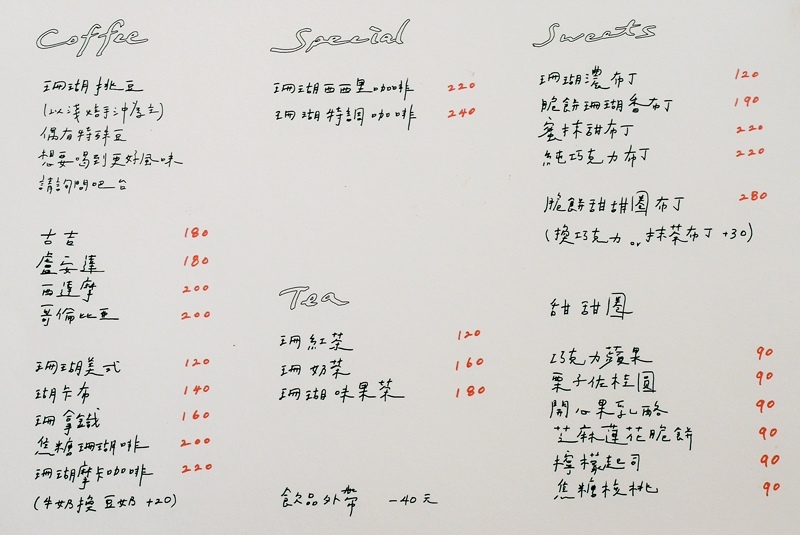 Coffee
珊瑚挑豆
(以淺焙手沖為主)
偶有特殊豆
想要喝到更好風味
請詢問吧台
古吉 180
盧安達 180
西達摩 200
哥倫比亞 200
珊瑚美式 120
瑚卡布 140
珊拿鐵 160
焦糖珊瑚咖啡 200
珊瑚摩卡咖啡 220
(牛奶換豆奶 +20)
Special
珊瑚西西里咖啡 220
珊瑚特調咖啡 240
Tea
珊紅茶 120
珊奶茶 160
珊瑚味果茶 180
飲品外帶 -40元
Sweets
珊瑚濃布丁 120
脆餅珊瑚香布丁 190
蜜抹甜布丁 220
純巧克力布丁 220
脆餅甜甜圈布丁 280
(換巧克力 or 抹茶布丁 +30)
甜甜圈
巧克力蘋果 90
栗子佐桂圓 90
開心果乳酪 90
芝麻蓮花脆餅 90
檸檬起司 90
焦糖核桃 90